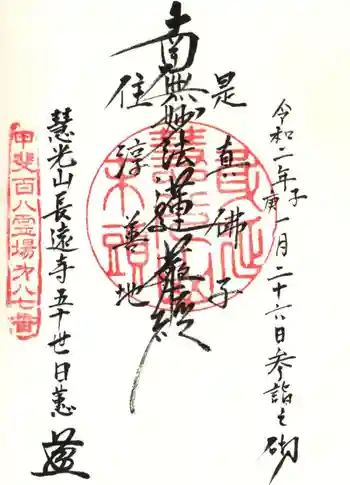 令和二年庚子一月二十六日参詣之砌
是真佛子
南無妙法蓮華経
住淳善地
慧光山長遠寺五十世日蕙
甲斐百八霊場九八七番